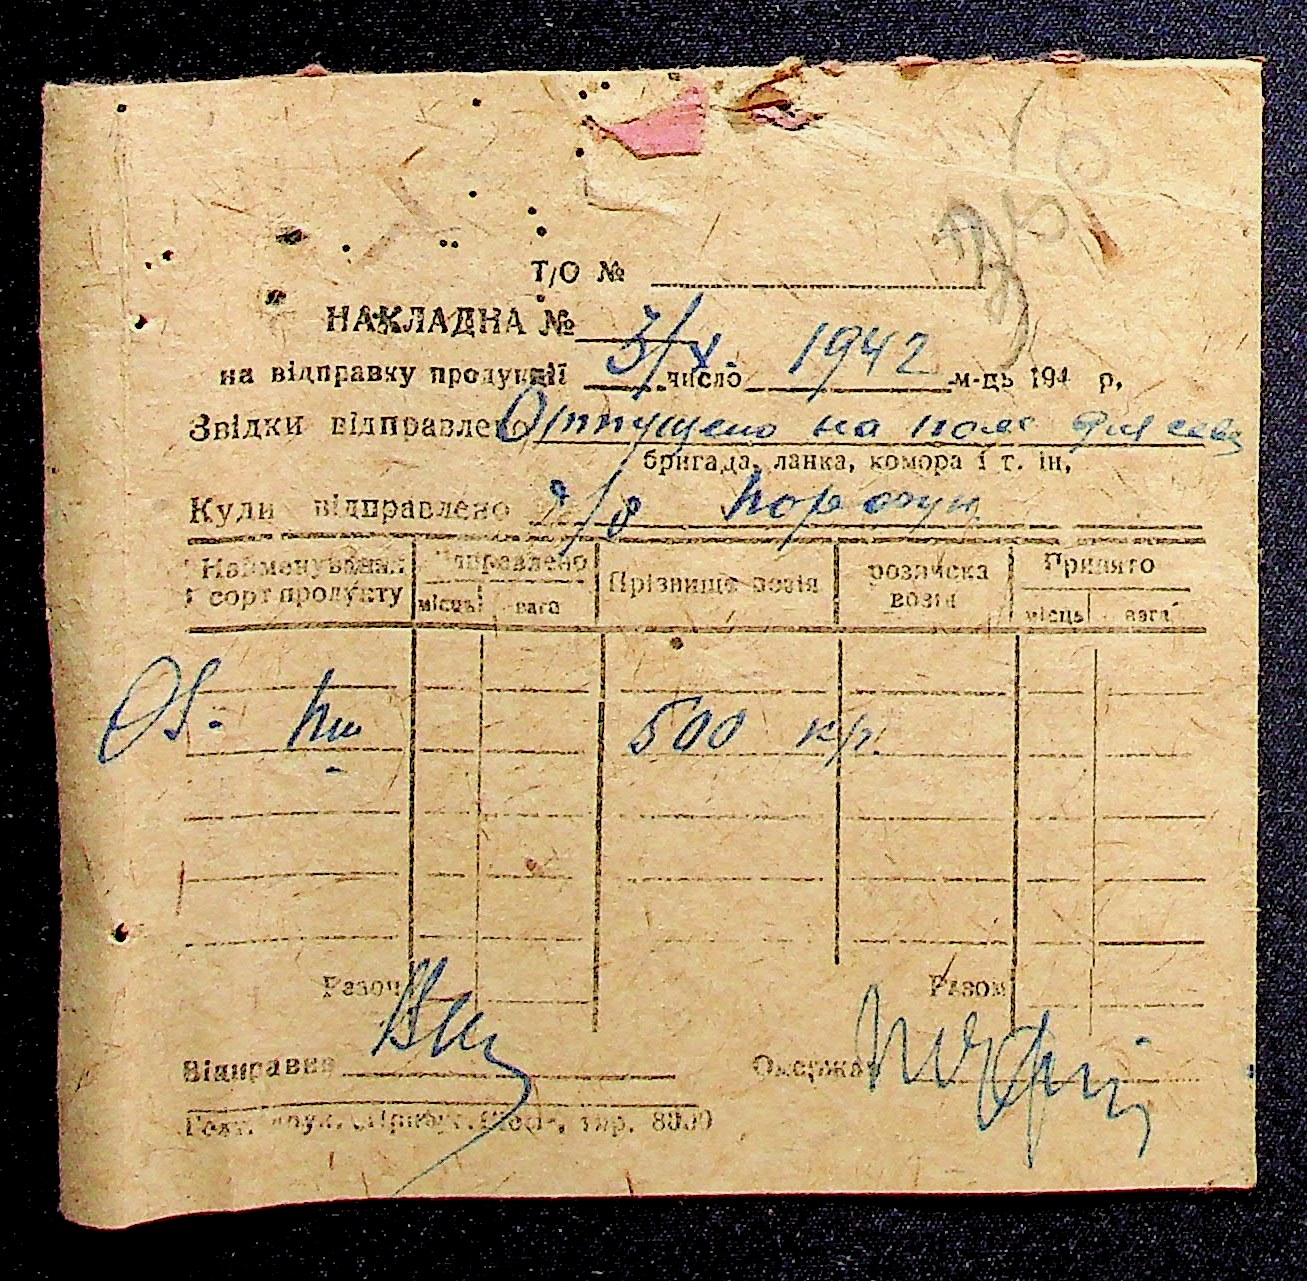 Т/О №
НАКЛАДНА № 3/X 1942
на відправку продукції число м-ць 194 р.
Звідки відправлено Отпущено на поле для сева
бригада, ланка, комора і т. ін,
Куди відправлено
Найменування і сорт продукту Відправлено місць вага Прізвище возія розписка возія Принято місць вага
Оз. пш 500 кг.
Разом Разом
Відправив Одержав
тир. 8000